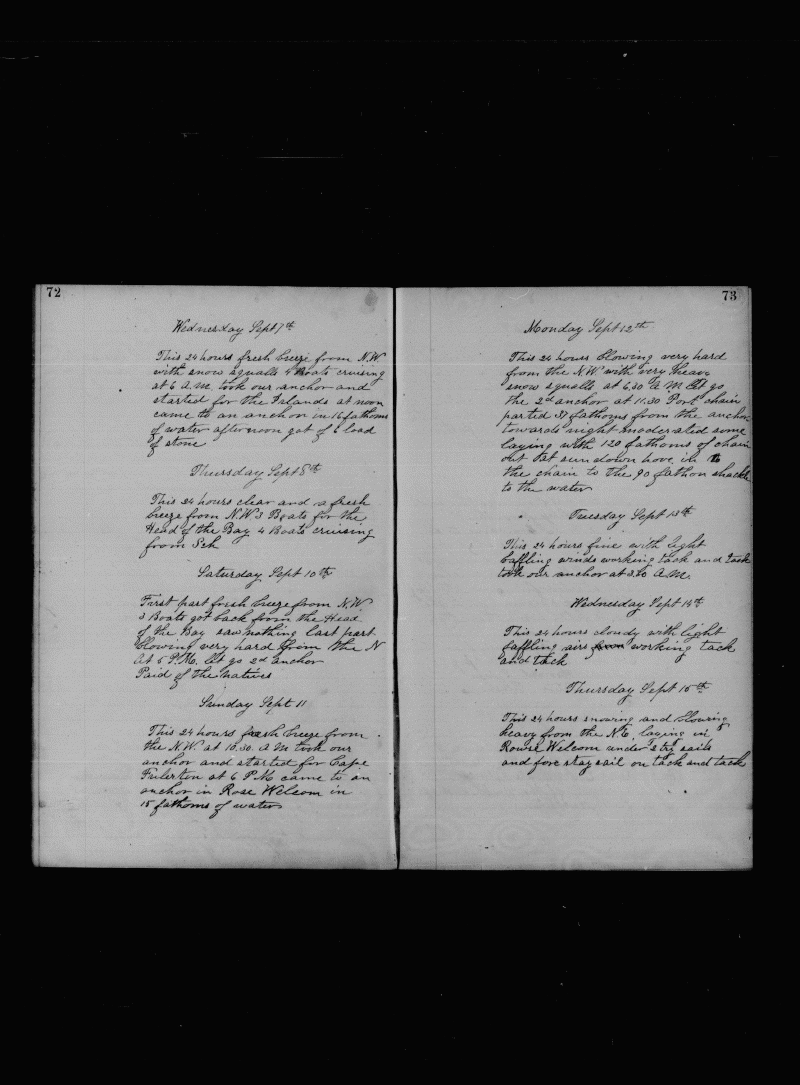 72
Wednesday Sept 7th
This 24 hours fresh breeze from N.W
with snow squalls 4 Boats cruising
at 6 A.M. took our anchor and
started for the Islands at noon
came to an anchor in 16 fathoms
of water afternoon got of 1 load
of stone
Thursday Sept 8th
This 24 hours clear and a fresh
breeze from N.W 3 Boats for the
Head of the Bay 4 Boats cruising
from Sch
Saturday Sept 10th
First part fresh breeze from N.W.
3 Boats got back from the Head
of the Bay saw nothing last part
blowing very hard from the N
At 5 P.M. let go 2d anchor
Paid of the natives
Sunday Sept 11
This 24 hours fresh breeze from
the N.W. at 10.30. A M took our
anchor and started for Cape
Fulerton at 6 P M came to an
anchor in Rose Welcom in
15 fathoms of water
73
Monday Sept 12th
This 24 hours blowing very hard
from the N.W. with very heavy
snow squalls at 6.30 A M let go
the 2d anchor at 11.30 Port chain
parted 37 fathoms from the anchor
towards night moderated some
laying with 120 fathoms of chain
out at sun down hove in
the chain to the 90 fathon shackle
to the water
Tuesday Sept 13th
This 24 hours fine with light
baffling winds working tack and tack
took our anchor at A.M.
Wednesday Sept 14th
This 24 hours cloudy with light
baffling airs working tack
and tack
Thursday Sept 15th
This 24 hours snowing and blowing
heavy from the N.E. laying in
Rowse Welcom under sails
and fore stay sail on tack and tack